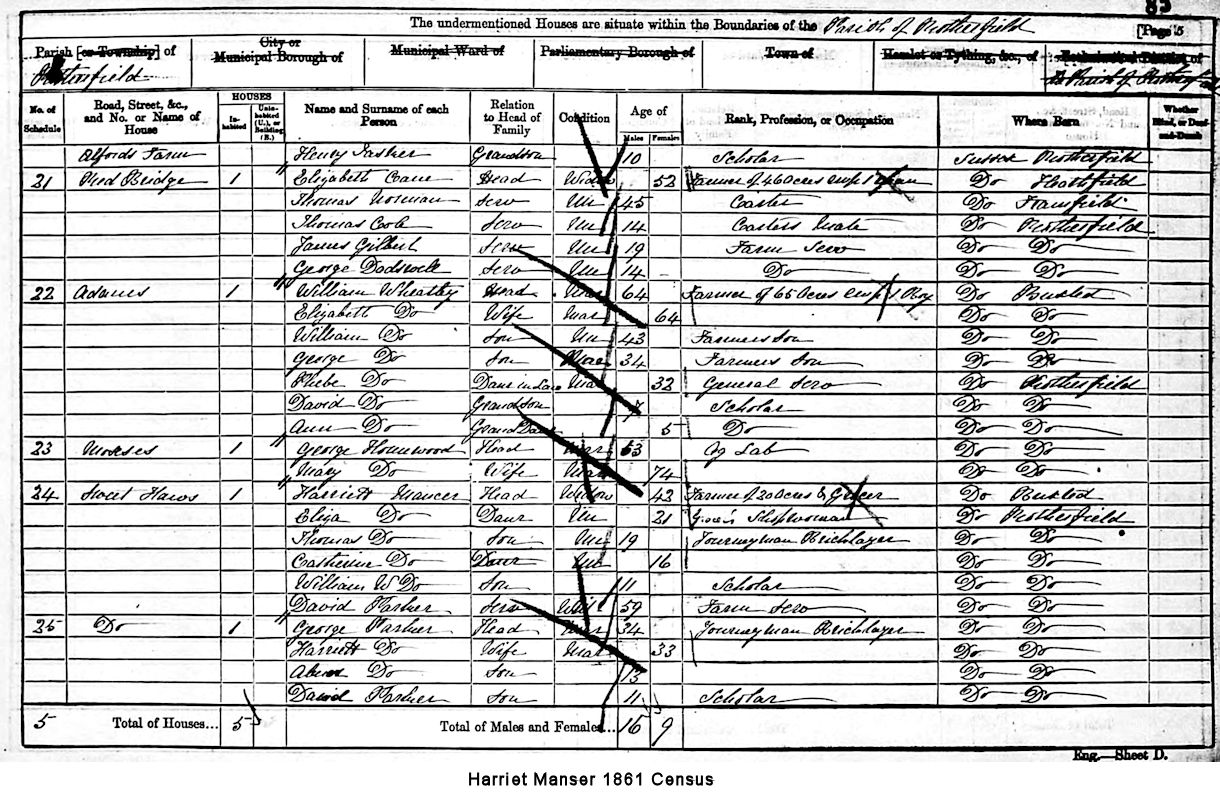 85
The undermentioned Houses are situate within the Boundaries of the Parish of Rotherfield [Page 5
Parish [or Township] of Rotherfield
City or Municipal Borough of
Municipal Ward of
Parliamentary Borough of
Town of
Hamlet or Tything, &c., of
Ecclesiastical District of Parish of Rotherfield
No. of Schedule Road, Street, &c., and No. or Name of House HOUSES Inhabited Uninhabited (U.), or Building (B.) Name and Surname of each Person Relation to Head of Family Condition Age of Males Females Rank, Profession, or Occupation Where Born Whether Blind, or Deaf-and-Dumb
Alfords Farm Henry Grandson 10 Scholar Sussex Rotherfield
21 Red Bridge 1 Elizabeth Head Widow 52 Farmer of 46 Acres emp 1 Man Do Heathfield
Thomas Norman Serv Un 45 Carter Do Framfield
Thomas Serv Un 14 Carters Mate Do Rotherfield
James Gilbert Serv Un 19 Farm Serv Do Do
George Dadswell Serv Un 14 Do Do Do
22 Adams 1 William Wheatley Head Mar 64 Farmer of 65 Acres emp 1 Boy Do Buxted
Elizabeth Do Wife Mar 64 Do Do
William Do Son Un 43 Farmers Son Do Do
George Do Son Mar 34 Farmers Son Do Do
Phebe Do Daur in Law Mar 32 General Serv Do Rotherfield
David Do Grandson 7 Scholar Do Do
Ann Do Grand Daur 5 Do Do Do
23 1 George Homewood Head Mar 63 Ag Lab Do Do
Mary Do Wife Mar 74 Do Do
24 Sweet Haws 1 Harriett Mancer Head Widow 42 Farmer of 20 Acres & Grocer Do Buxted
Eliza Do Daur Un 21 Grocer's Shopwoman Do Rotherfield
Thomas Do Son Un 19 Journeyman Bricklayer Do Do
Catherine Do Daur Un 16 Do Do
William W Do Son 11 Scholar Do Do
David Serv Wid 59 Farm Serv Do Do
25 Do 1 George Head Mar 34 Journeyman Bricklayer Do Do
Harriett Do Wife Mar 33 Do Do
Do Son 13 Do Do
David Son 11 Scholar Do Do
5 Total of Houses... 5 Total of Males and Females... 16 9
Eng.—Sheet D.
Harriet Manser 1861 Census